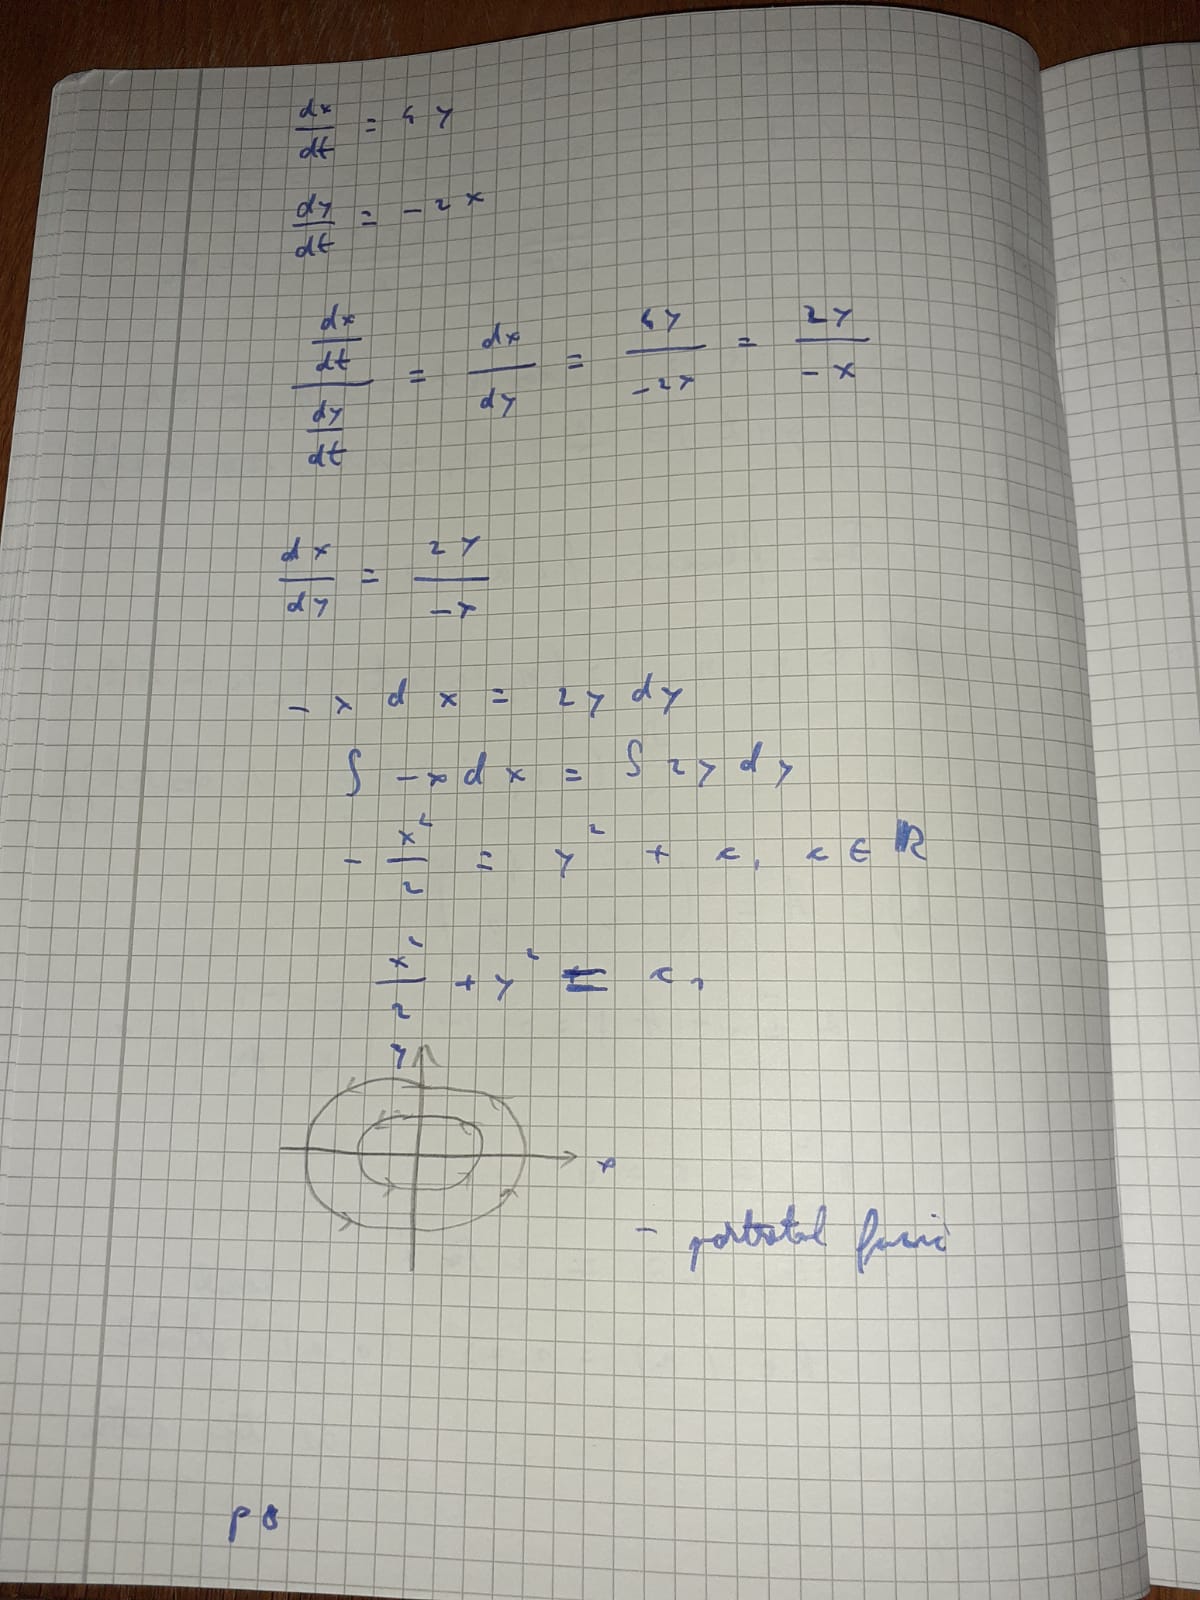 dx/dt = 4y
dy/dt = -2x
(dx/dt)/(dy/dt) = dx/dy = 4y/-2x = 2y/-x
dx/dy = 2y/-x
-x dx = 2y dy
∫ -x dx = ∫ 2y dy
- x²/2 = y² + c, c ∈ ℝ
x²/2 + y² = c,
y
x
-
p8